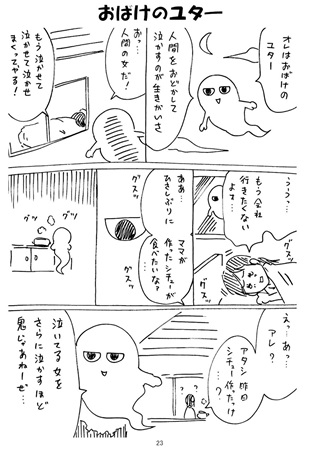 おばけのユター
オレはおばけの
ユター
人間をおどかして
泣かすのが生きがいさ
おっ…
人間の女だ!
もう泣かせて
泣かせて泣かせ
まくってやる!
うぅっ…
もう会社
行きたくない
よォ…
グスッ
グスッ
ああ…
ひさしぶりに
ママが
作ったシチューが
食べたいな…
グスッ
グスッ
グツ
グツ
えっ…あっ…
アレ?
アタシ昨日
シチュー作ったっけ
…?
泣いてる女を
さらに泣かすほど
鬼じゃあねーぜ…
23